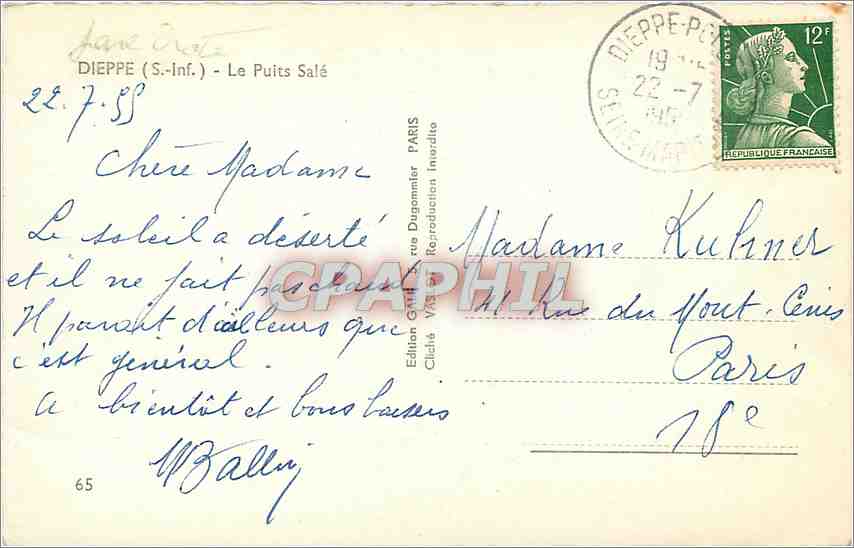 DIEPPE (S.-Inf.) - Le Puits Salé
22.7.55
Chère Madame
Le soleil a déserté
et il ne fait pas chaud
Il parait d'ailleurs que
c'est général.
A bientôt et bons baisers
65
Edition GABY 5 rue Dugommier PARIS
Cliché VASLOT Reproduction Interdite
CPAPHIL
DIEPPE-
19
22 -7
SEINE-MAR
POSTES
12F
REPUBLIQUE FRANÇAISE
Madame Kuhner
41 Rue du Mont-Cenis
Paris
18e